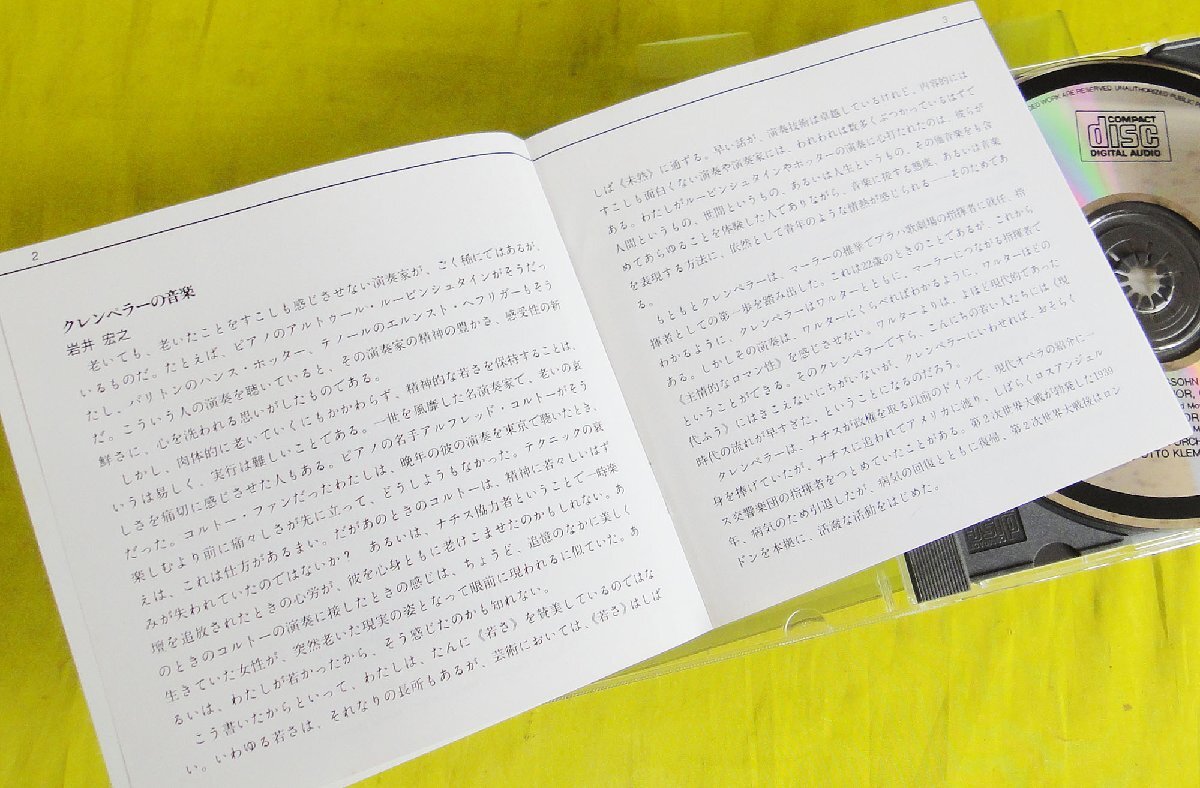 2
クレンペラーの音楽
岩井 宏之
老いても、老いたことをすこしも感じさせない演奏家が、ごく稀にではあるが、
いるものだ。たとえば、ピアノのアルトゥール・ルービンシュタインがそうだっ
たし、バリトンのハンス・ホッター、テノールのエルンスト・ヘフリガーもそう
だ。こういう人の演奏を聴いていると、その演奏家の精神の豊かさ、感受性の新
鮮さに、心を洗われる思いがしたものである。
しかし、肉体的に老いていくにもかかわらず、精神的な若さを保持することは、
いうは易しく、実行は難しいことである。一世を風靡した名演奏家で、老いの哀
しさを痛切に感じさせた人もある。ピアノの名手アルフレッド・コルトーがそう
だった。コルトー・ファンだったわたしは、晩年の彼の演奏を東京で聴いたとき、
楽しむより前に痛々しさが先に立って、どうしようもなかった。テクニックの衰
えは、これは仕方があるまい。だがあのときのコルトーは、精神に若々しいはず
みが失われていたのではないか? あるいは、ナチス協力者ということで一時楽
壇を追放されたときの心労が、彼を心身ともに老けこませたのかもしれない。あ
のときのコルトーの演奏に接したときの感じは、ちょうど、追憶のなかに美しく
生きていた女性が、突然老いた現実の姿となって眼前に現われるに似ていた。あ
るいは、わたしが若かったから、そう感じたのかも知れない。
こう書いたからといって、わたしは、たんに《若さ》を賛美しているのではな
い。いわゆる若さは、それなりの長所もあるが、芸術においては、《若さ》はしば
3
しば《未然》に通ずる。早い話が、演奏技術は卓越しているけれど、内容的には
すこしも面白くない演奏や演奏家には、われわれは数多くぶつかっているはずで
ある。わたしがルービンシュタインやホッターの演奏に心打たれたのは、彼らが
人間というもの、世間というもの、あるいは人生というもの、その他音楽をも含
めてあらゆることを体験した人でありながら、音楽に接する態度、あるいは音楽
を表現する方法に、依然として青年のような情熱が感じられる——そのためであ
る。
もともとクレンペラーは、マーラーの推挙でプラハ歌劇場の指揮者に就任、指
揮者としての第一歩を踏み出した。これは22歳のときのことであるが、これから
わかるように、クレンペラーはワルターとともに、マーラーにつながる指揮者で
ある。しかしその演奏は、ワルターにくらべればわかるように、ワルターほどの
《主情的なロマン性》を感じさせない。ワルターよりは、よほど現代的であった
ということができる。そのクレンペラーですら、こんにちの若い人たちには《現
代ふう》にはきこえないにちがいないが、クレンペラーにいわせれば、おそらく
時代の流れが早すぎた、ということになるのだろう。
クレンペラーは、ナチスが政権を取る以前のドイツで、現代オペラの紹介に一
身を捧げていたが、ナチスに追われてアメリカに渡り、しばらくロスアンジェル
ス交響楽団の指揮者をつとめていたことがある。第2次世界大戦が勃発した1939
年、病気のため引退したが、病気の回復とともに復帰、第2次世界大戦後はロン
ドンを本拠に、活発な活動をはじめた。
WORK ARE RESERVED UNAUTHORIZED PUBLIC
COMPACT
disc
DIGITAL AUDIO
OTTO KLEM